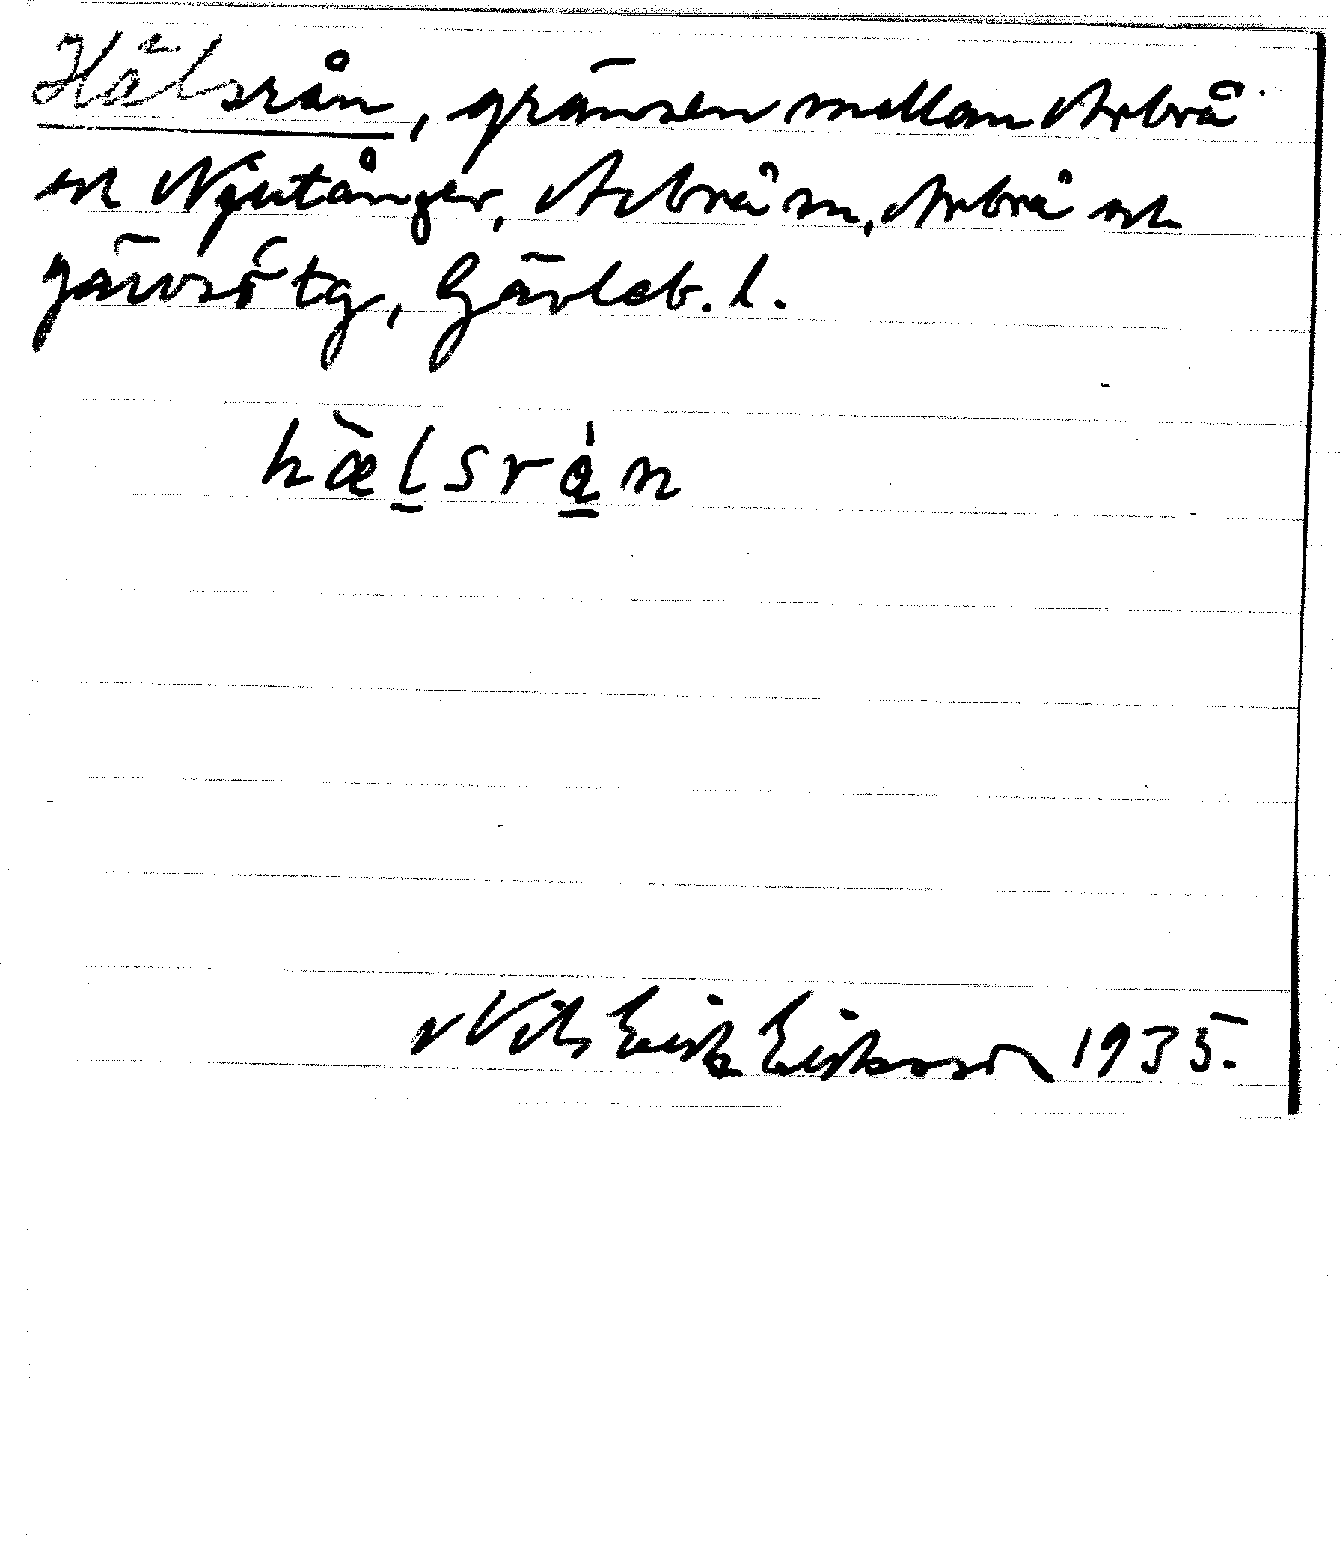 Hälsrån, gränsen mellan Arbrå
och Njutånger, Arbrå sn, Arbrå och
Järvsö tg, Gävleb. l.
hæ̀lsrån
Nils Erik Eriksson 1935.